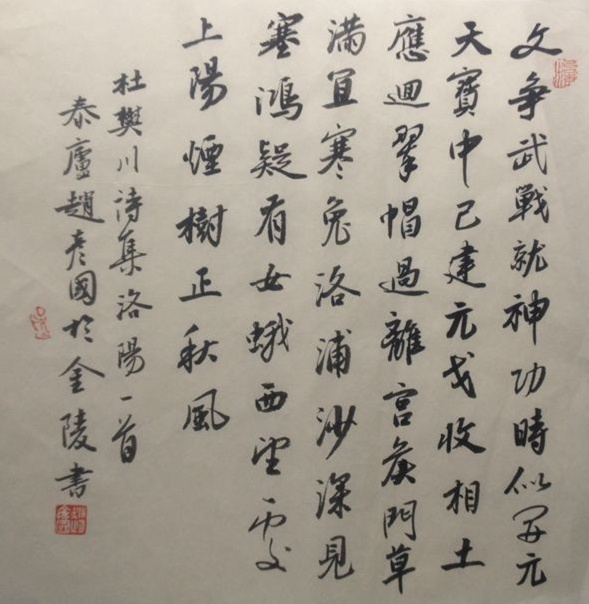 文爭武戰就神功時似開元
天寶中已建元戈收相土
應迴翠帽過離宮侯門草
滿宜寒兔洛浦沙深見
塞鴻疑有女蛾西望處
上陽煙樹正秋風
杜樊川詩集洛陽一首
泰廬趙彥國於金陵書